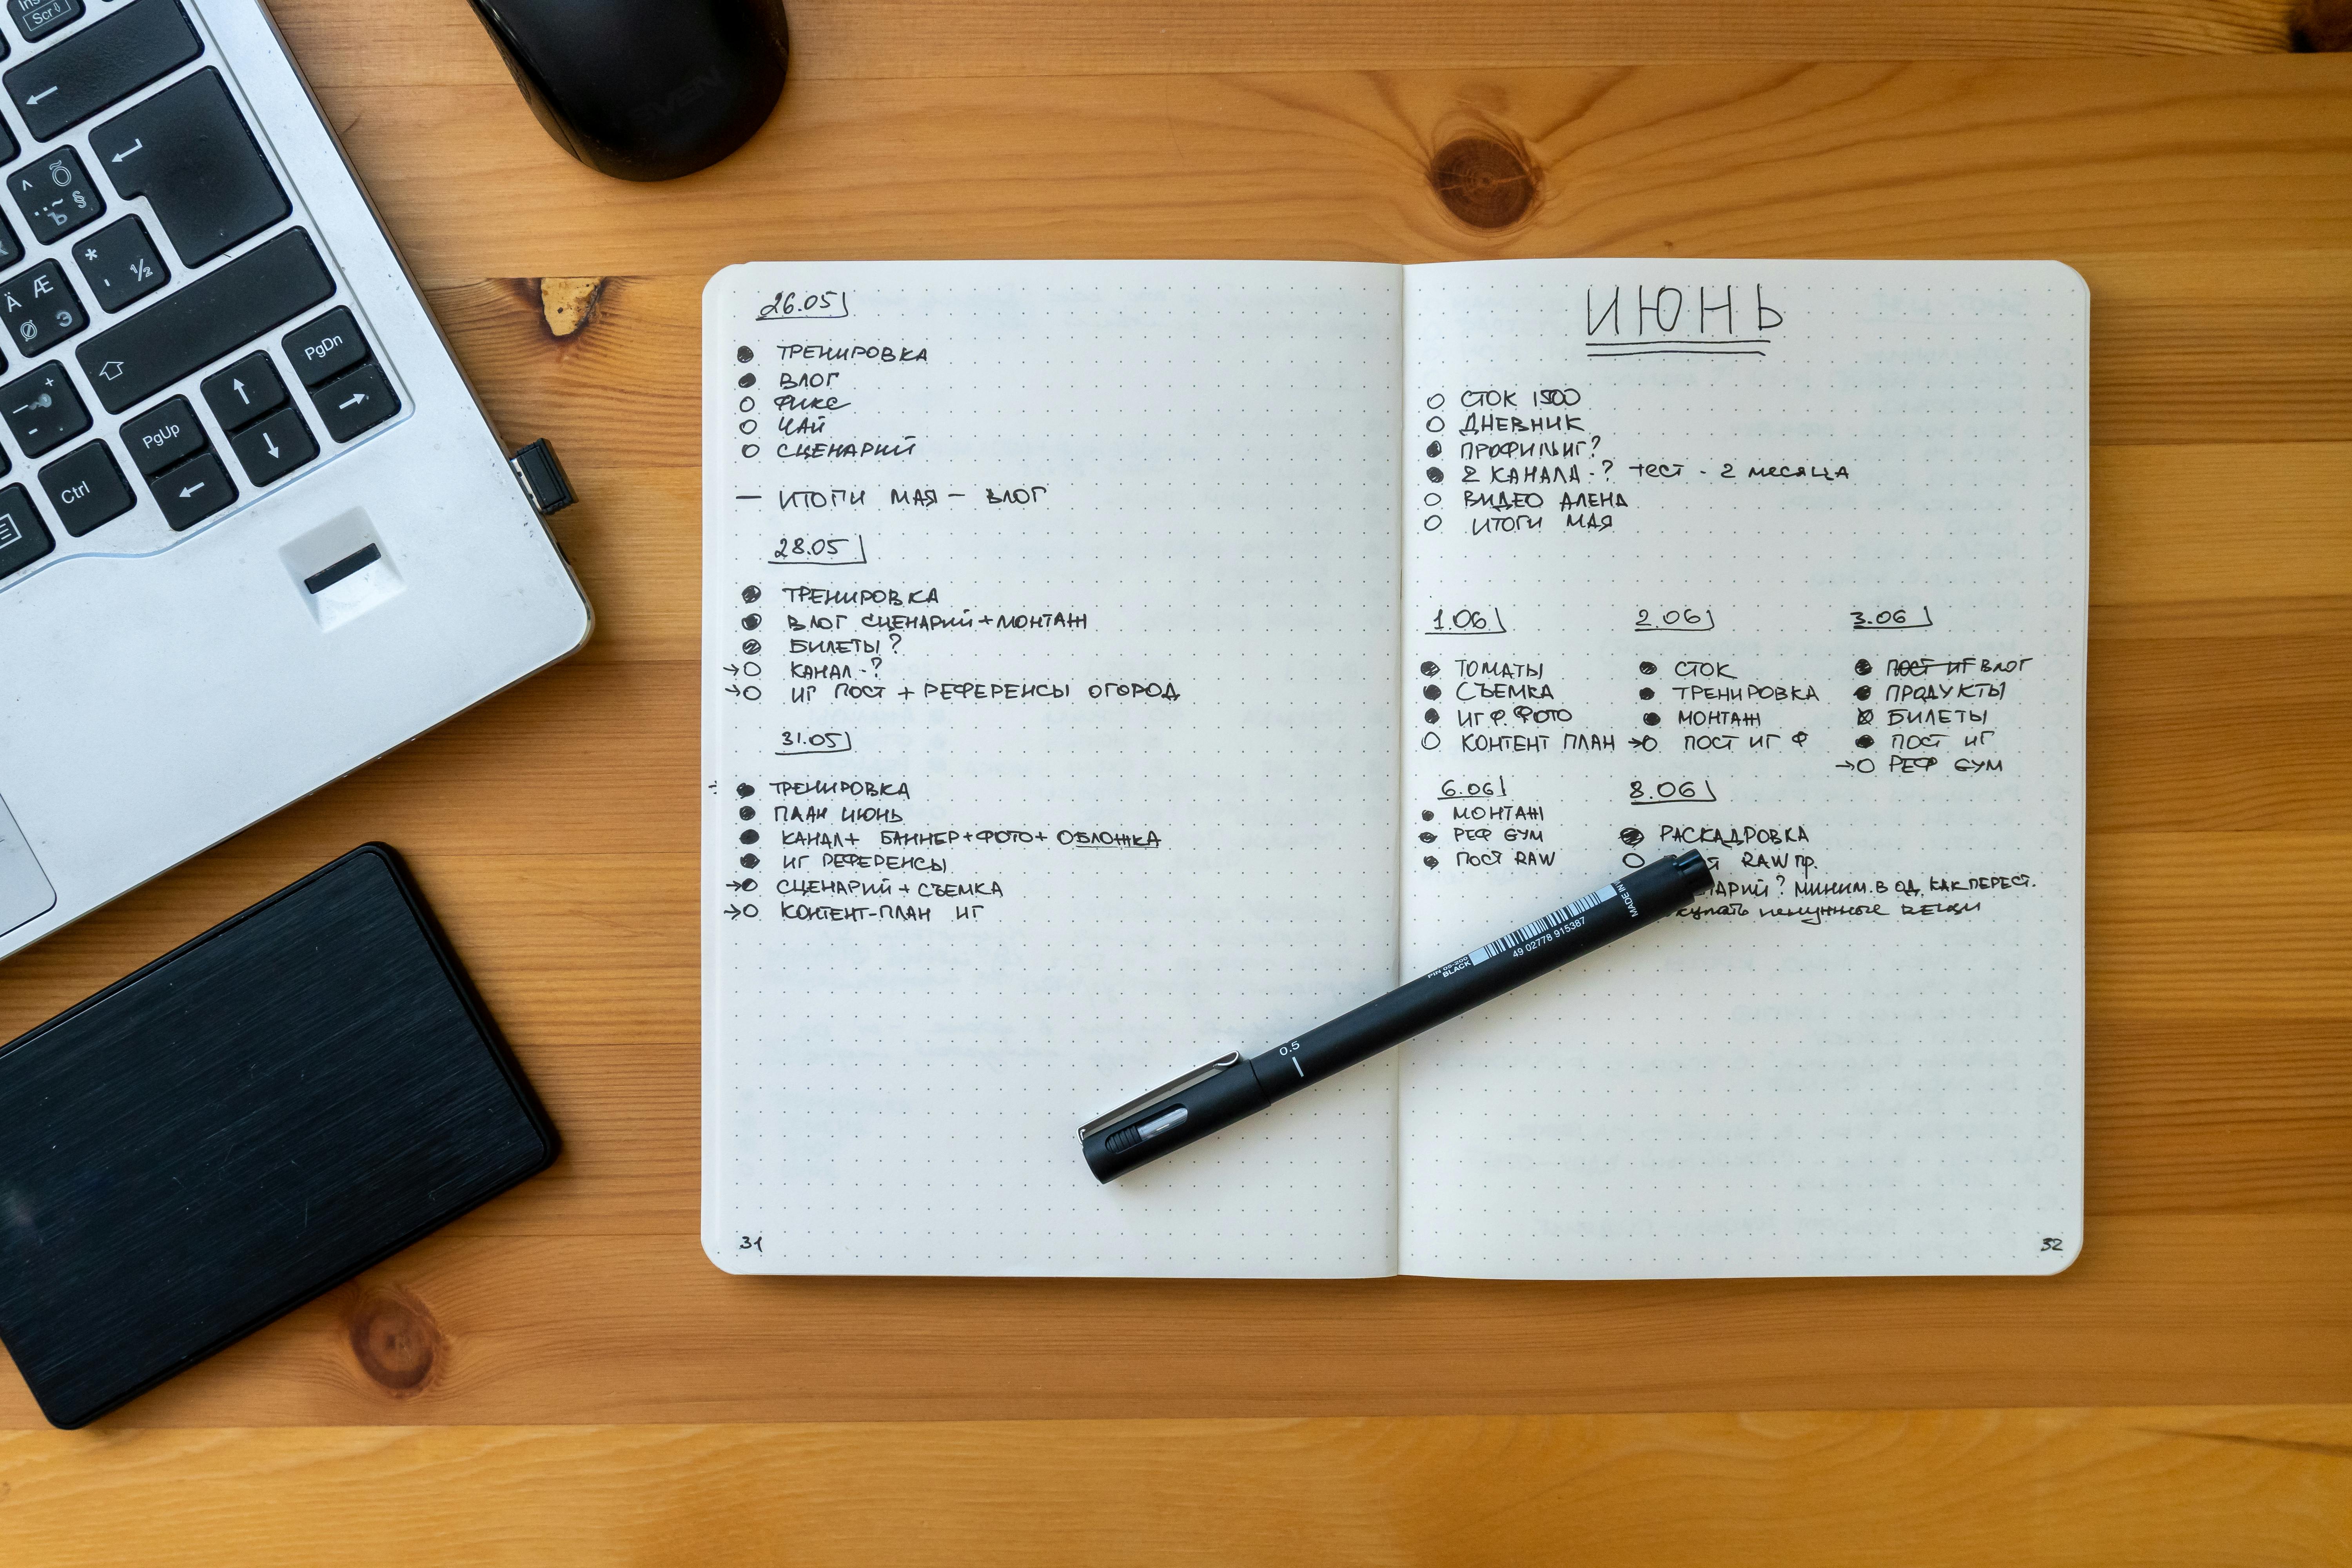 Ins
Scr
½
PgDn
PgUp
Ctrl
SVEN
26.05
ТРЕНИРОВКА
ВЛОГ
ФИКС
ЧАЙ
СЦЕНАРИЙ
— ИТОГИ МАЯ — ВЛОГ
28.05
ТРЕНИРОВКА
ВЛОГ СЦЕНАРИЙ+МОНТАЖ
БИЛЕТЫ?
→ КАНАЛ-?
→ ИГ ПОСТ + РЕФЕРЕНСЫ ОГОРОД
31.05
ТРЕНИРОВКА
ПЛАН ИЮНЬ
КАНАЛ+ БАННЕР+ФОТО+ ОБЛОЖКА
ИГ РЕФЕРЕНСЫ
→ СЦЕНАРИЙ + СЪЕМКА
→ КОНТЕНТ-ПЛАН ИГ
31
ИЮНЬ
СТОК 1500
ДНЕВНИК
ПРОФИЛЬ ИГ?
2 КАНАЛА-? ТЕСТ - 2 МЕСЯЦА
ВИДЕО АЛЕНА
ИТОГИ МАЯ
1.06
ТОМАТЫ
СЪЕМКА
ИГ Ф. ФОТО
КОНТЕНТ ПЛАН
2.06
СТОК
ТРЕНИРОВКА
МОНТАЖ
→ ПОСТ ИГ Ф
3.06
ПОСТ ИГ ВЛОГ
ПРОДУКТЫ
БИЛЕТЫ
ПОСТ ИГ
→ РЕФ GYM
6.06
МОНТАЖ
РЕФ GYM
ПОСТ RAW
8.06
РАСКАДРОВКА
RAW пр.
? МИНИМ. В ОД. КАК ПЕРЕСТ.
ненужные вещи
32
0.5
BLACK
49 02778 915387
MADE IN